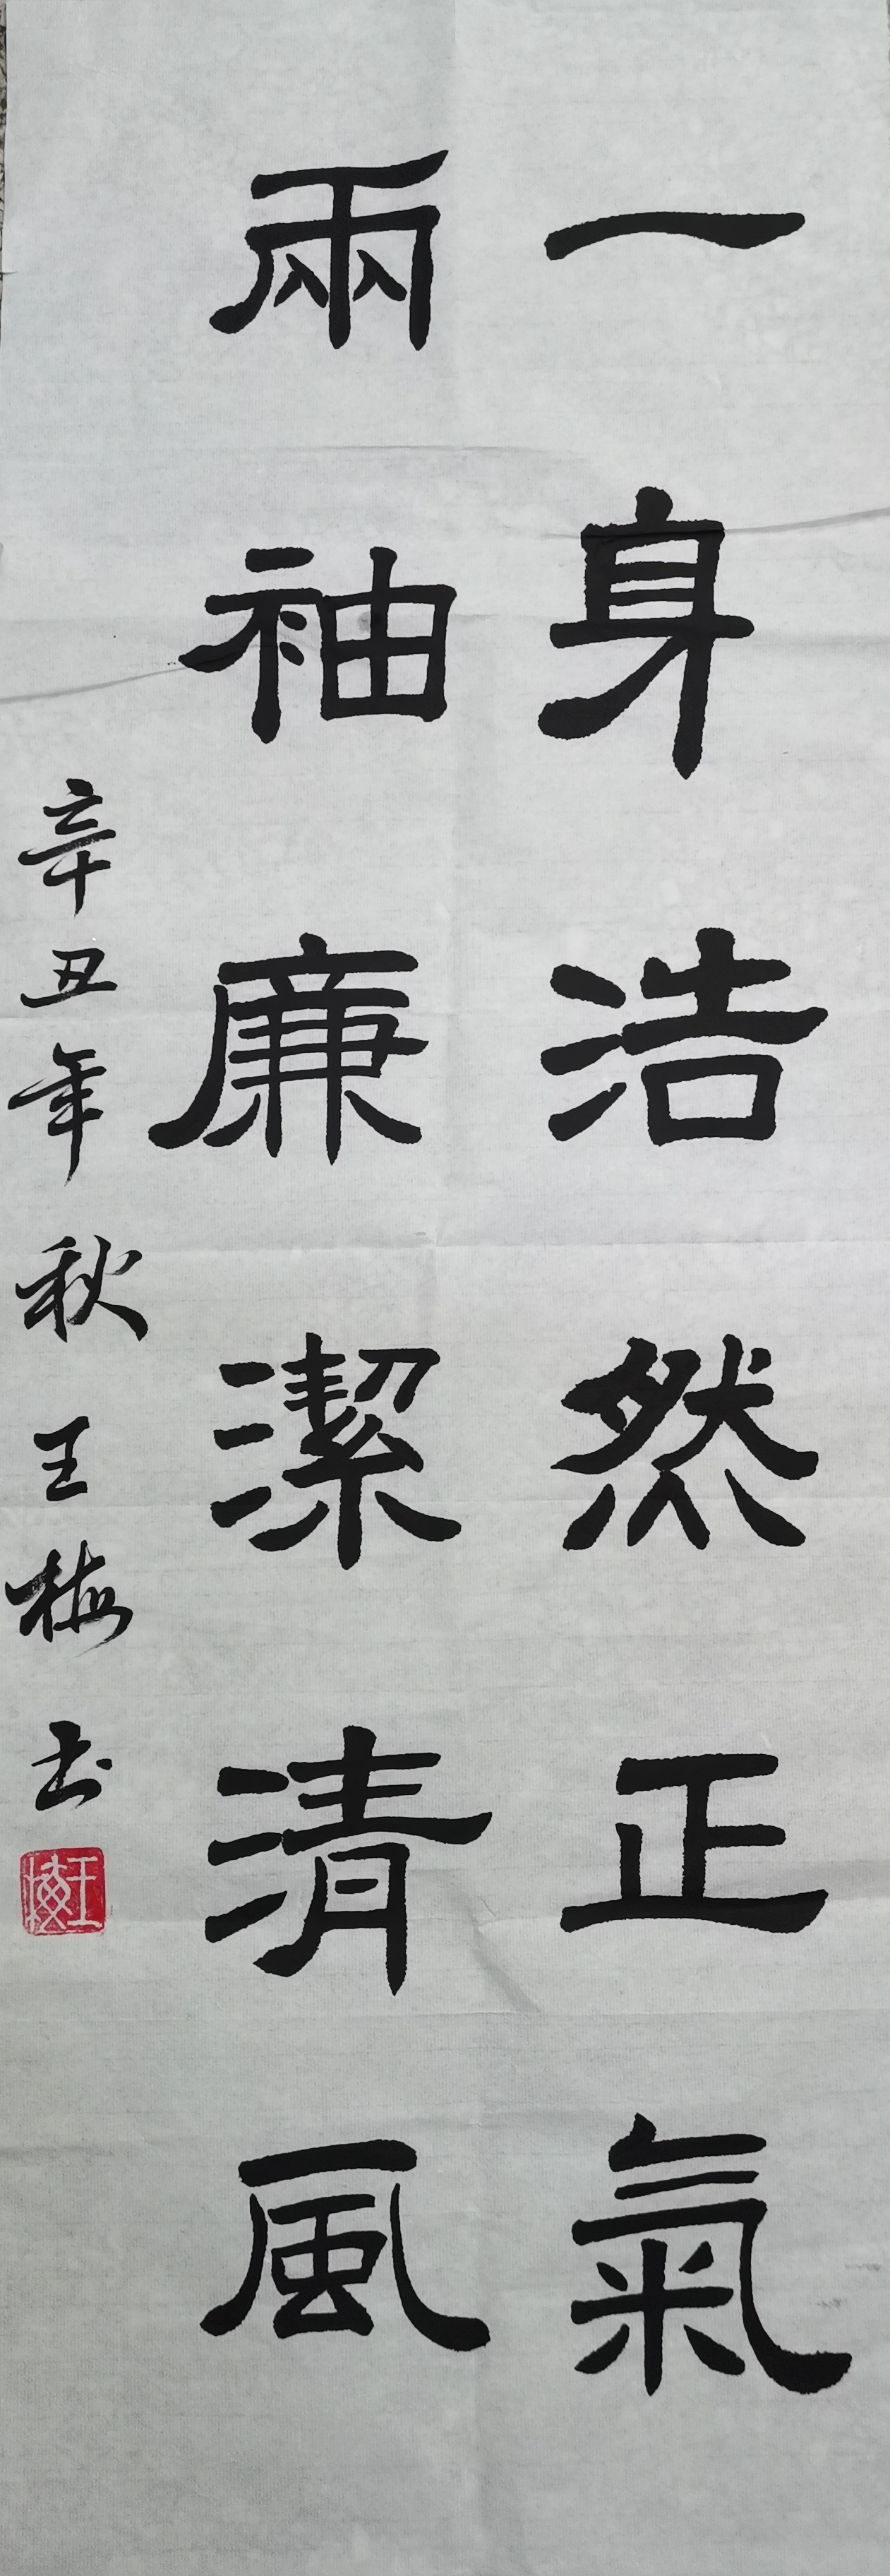 一身浩然正氣
兩袖廉潔清風
辛丑年秋王梅书
王梅